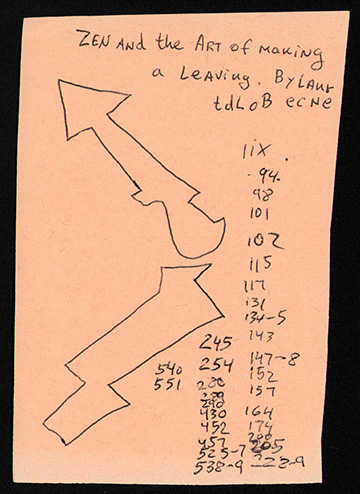 ZEN AND the ART of making
a LEAVING. By LAUR
tdLoB ecNe
iiX.
94.
98
101
102
115
117
131
134-5
143
147-8
152
157
164
174
200
205
223-9
245
254
280
430
452
457
525-7
538-9
540
551